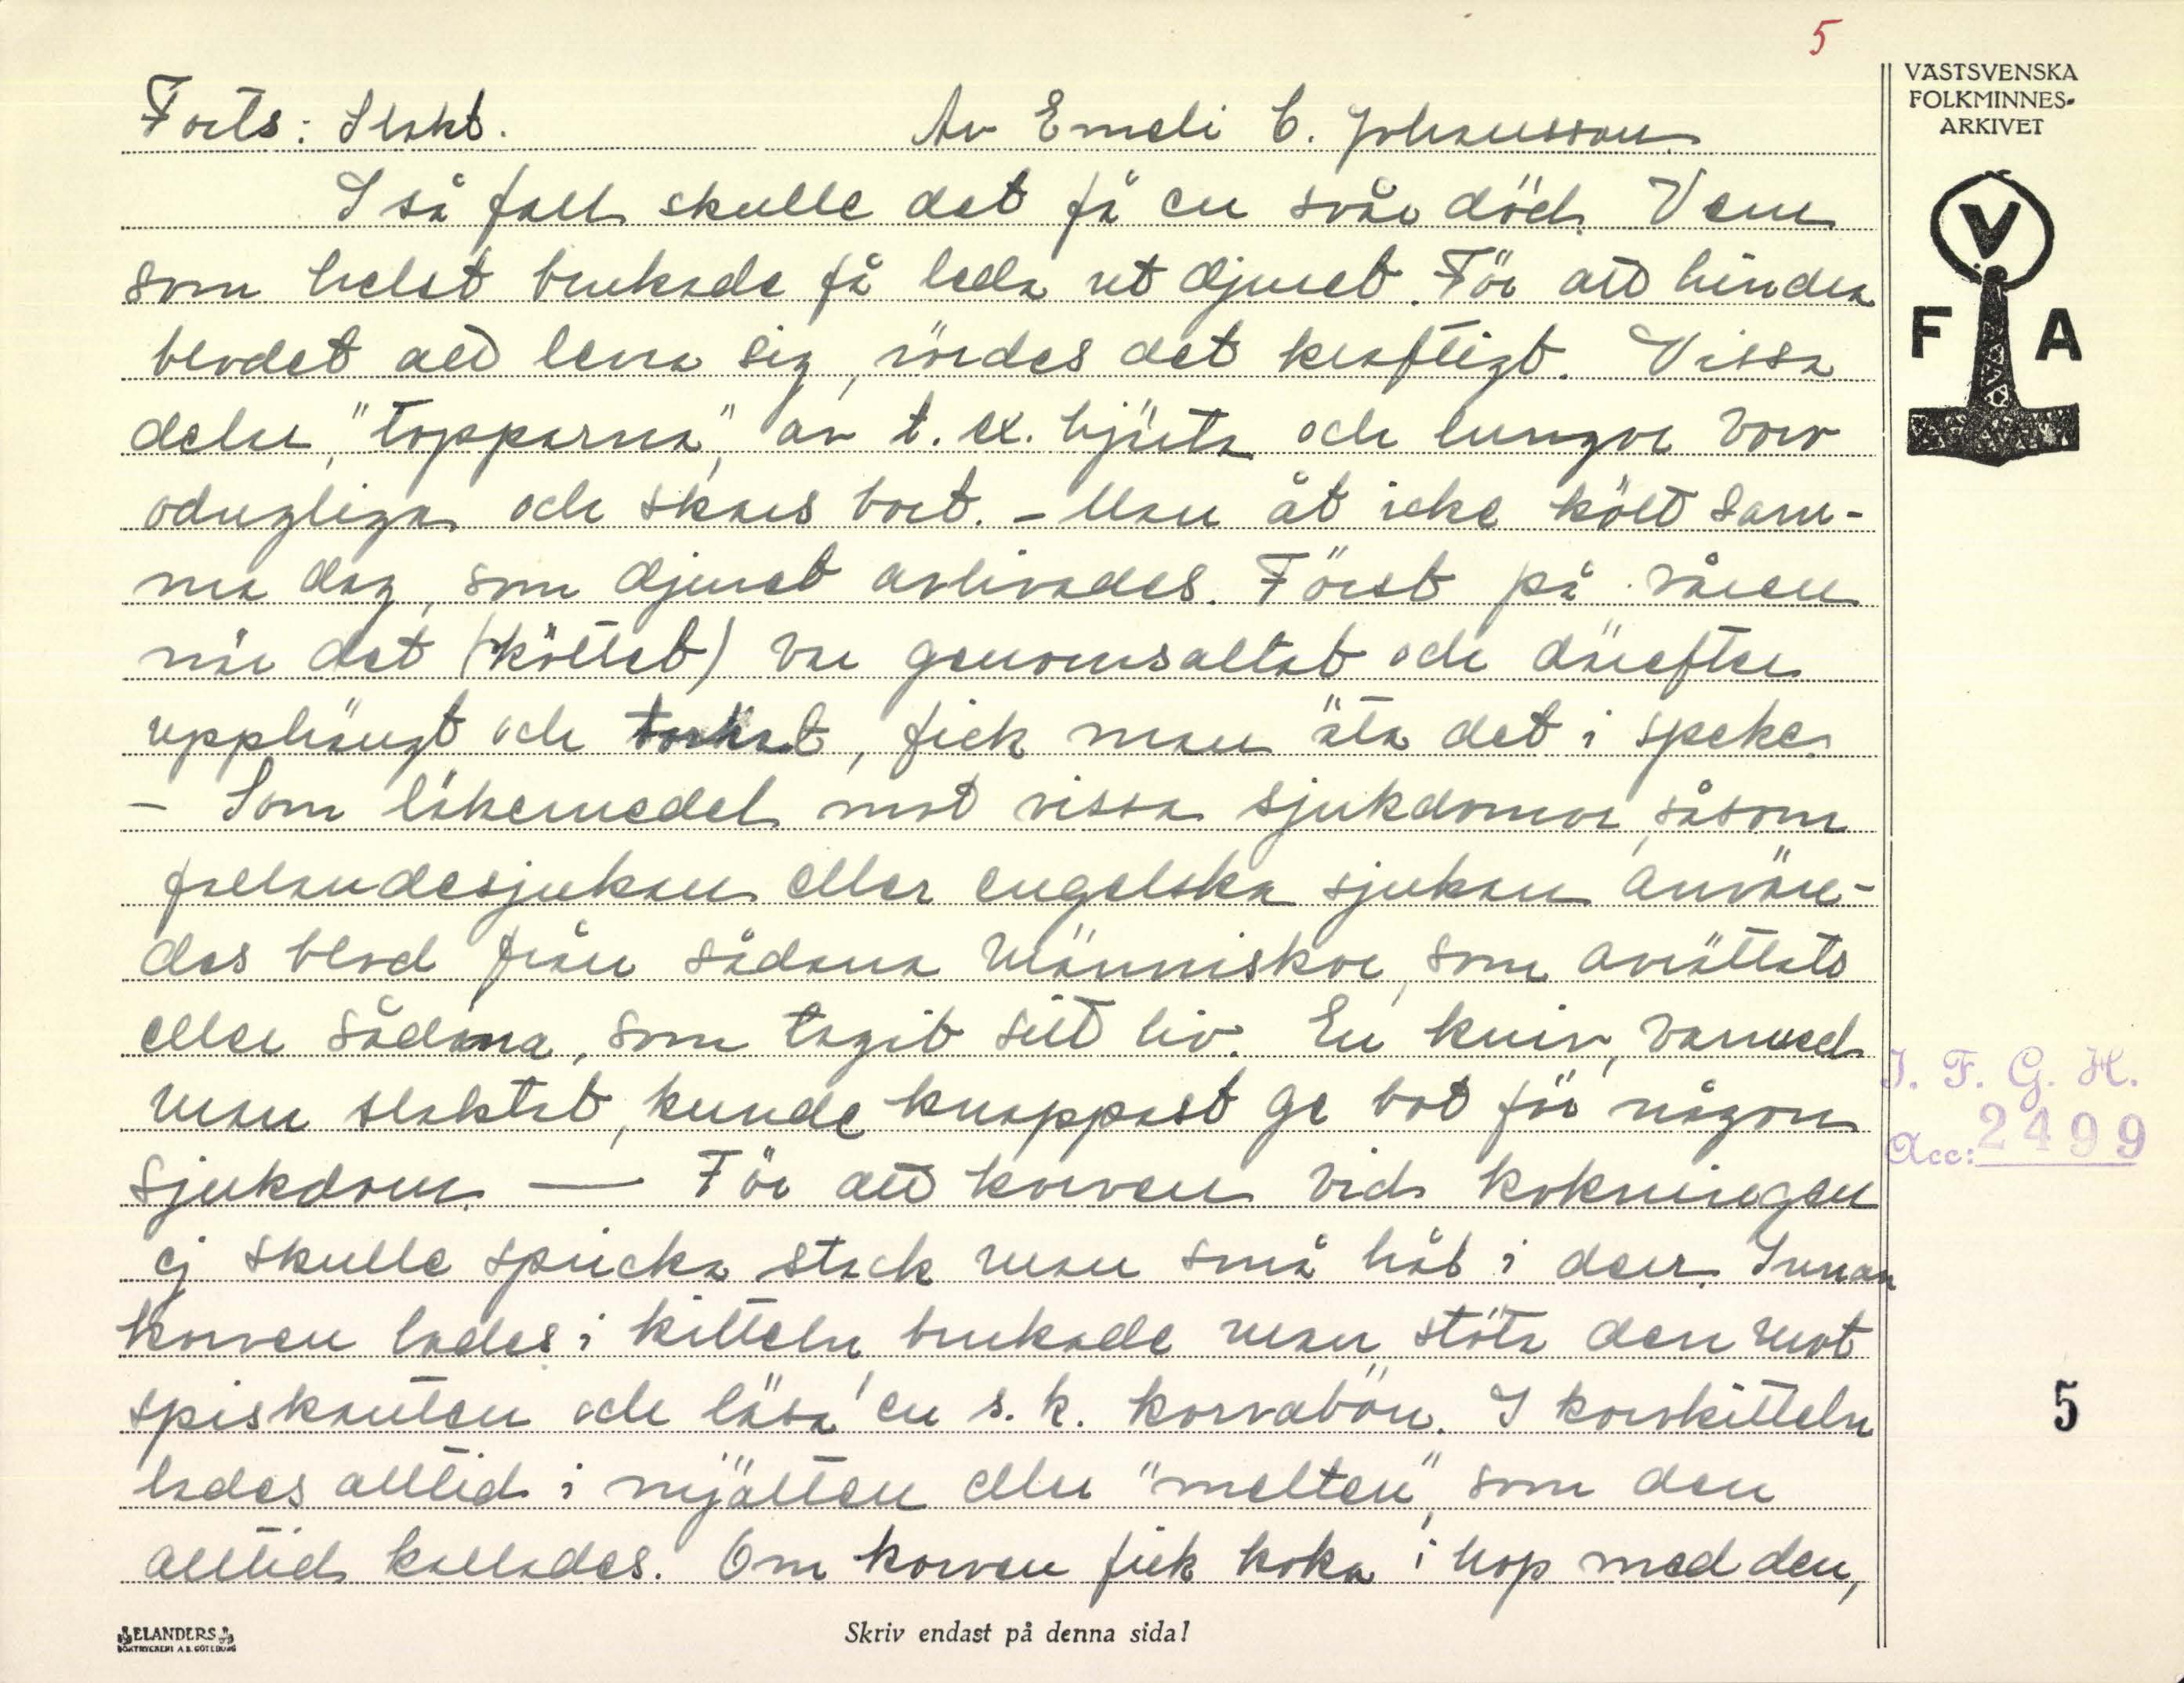 5
VÄSTSVENSKA
FOLKMINNES-
ARKIVET
V
F A
Forts: Slakt. Av Emeli C. Johansson
I så fall skulle det få en svår död. Vem
som helst brukade få leda ut djuret. För att hindra
blodet att levra sig, rördes det kraftigt. Vissa
delar, "topparna", av t. ex. hjärta och lungor voro
odugliga och skars bort. - Man åt icke kött sam-
ma dag, som djuret avlivades. Först på våren
när det (köttet) var genomsaltat och därefter
upphängt och torkat, fick man äta det i speke.
- Som läkemedel mot vissa sjukdomar, såsom
fallandesjukan eller engelska sjukan använ-
des blod från sådana människor, som avrättats
eller sådana, som tagit sitt liv. En kniv, varmed
man slaktat, kunde knappast ge bot för någon
sjukdom. — För att korven vid kokningen
ej skulle spricka stack man små hål i den. Innan
korven lades i kitteln, brukade man stöta den mot
spiskanten och läsa en s. k. korvabön. I korvkitteln
lades alltid i mjälten eller "melten", som den
alltid kallades. Om korven fick koka i hop med den,
I. F. G. H.
Acc: 2499
5
ELANDERS
BOKTRYCKERI A.B. GÖTEBORG
Skriv endast på denna sida!